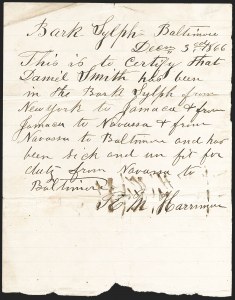 Bark Sylph Baltimore
Dec 3 1866
This is to Certify that
Daniel Smith has been
in the Bark Sylph from
New York to Jamaca & from
Jamaca to Navassa & from
Navassa to Baltimore and has
been sick and un fit for
duty from Navassa to
Baltimore
Harriman